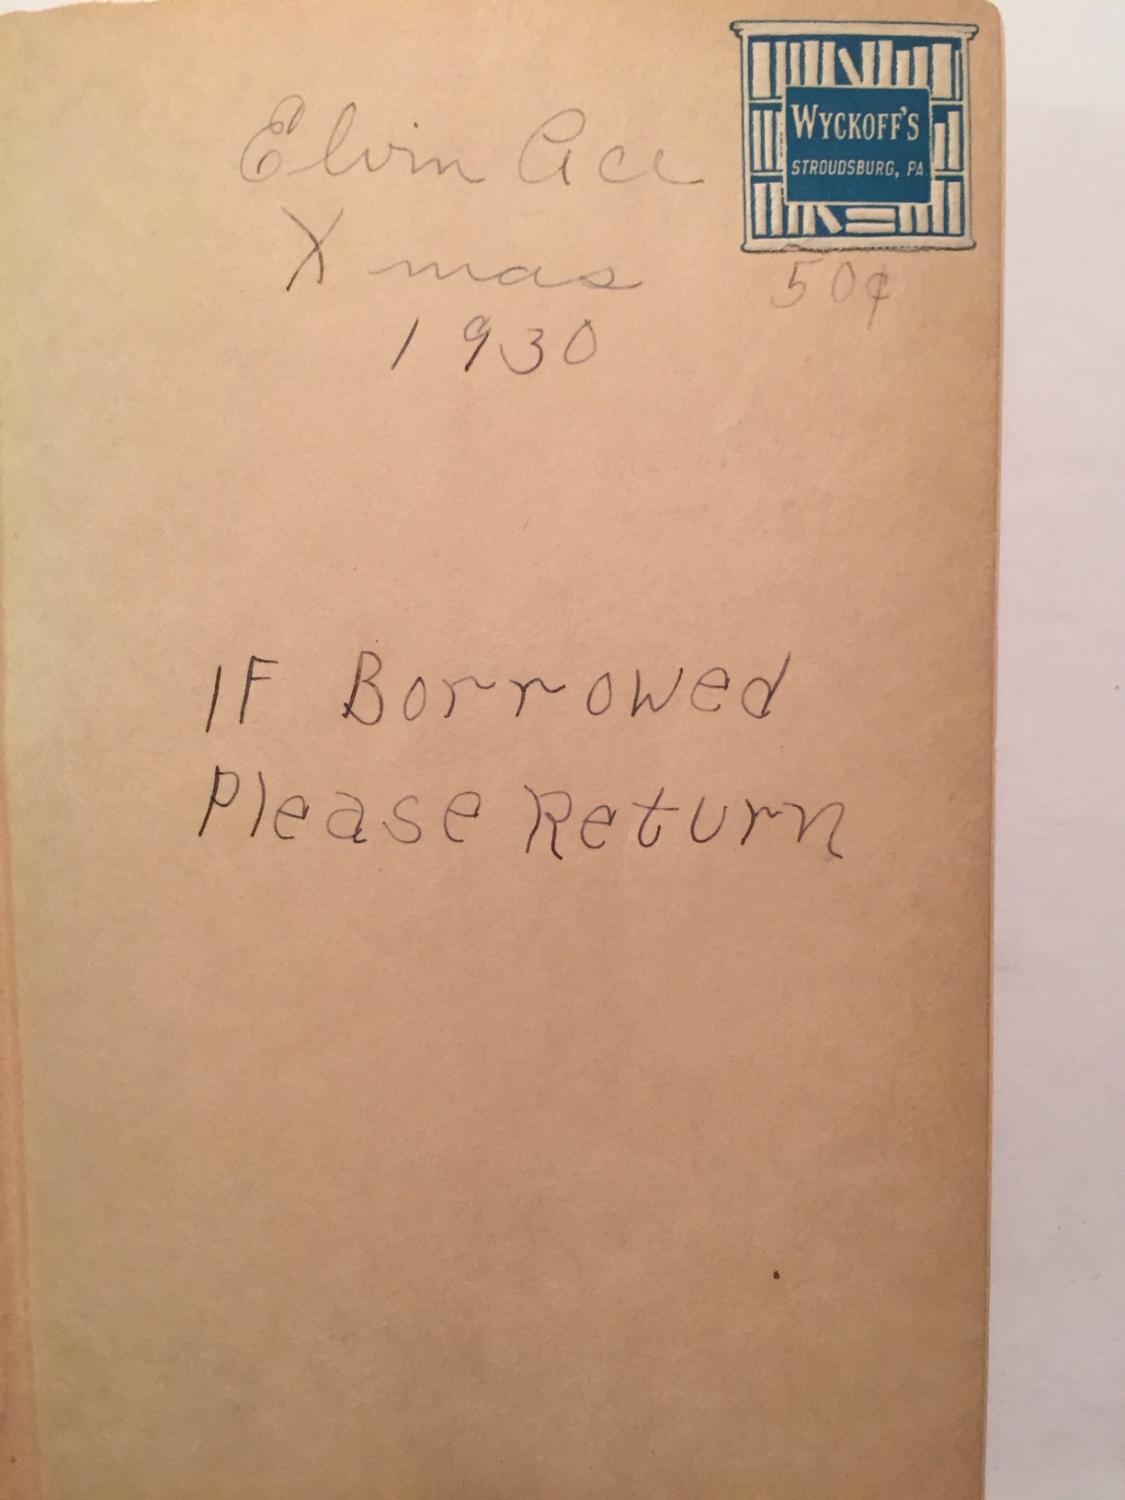 Elvin Ace
Xmas
1930
WYCKOFF'S
STROUDSBURG, PA.
50¢
IF Borrowed
Please Return